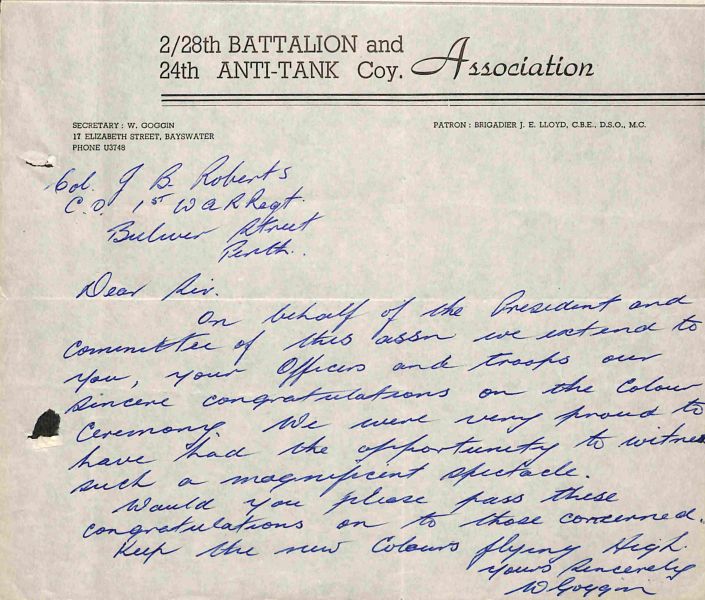 2/28th BATTALION and
24th ANTI-TANK Coy. Association
SECRETARY : W. GOGGIN
17 ELIZABETH STREET, BAYSWATER
PHONE U3748
PATRON : BRIGADIER J. E. LLOYD, C.B.E., D.S.O., M.C.
Col. J B. Roberts
C.O. 1st W A R Regt.
Bulwer Street
Perth.
Dear Sir.
On behalf of the President and
Committee of this assn we extend to
you, your Officers and troops our
sincere congratulations on the Colour
Ceremony. We were very proud to
have had the opportunity to witness
such a magnificent spectacle.
Would you please pass these
congratulations on to those concerned.
Keep the new Colours flying High.
Yours Sincerely
W Goggin